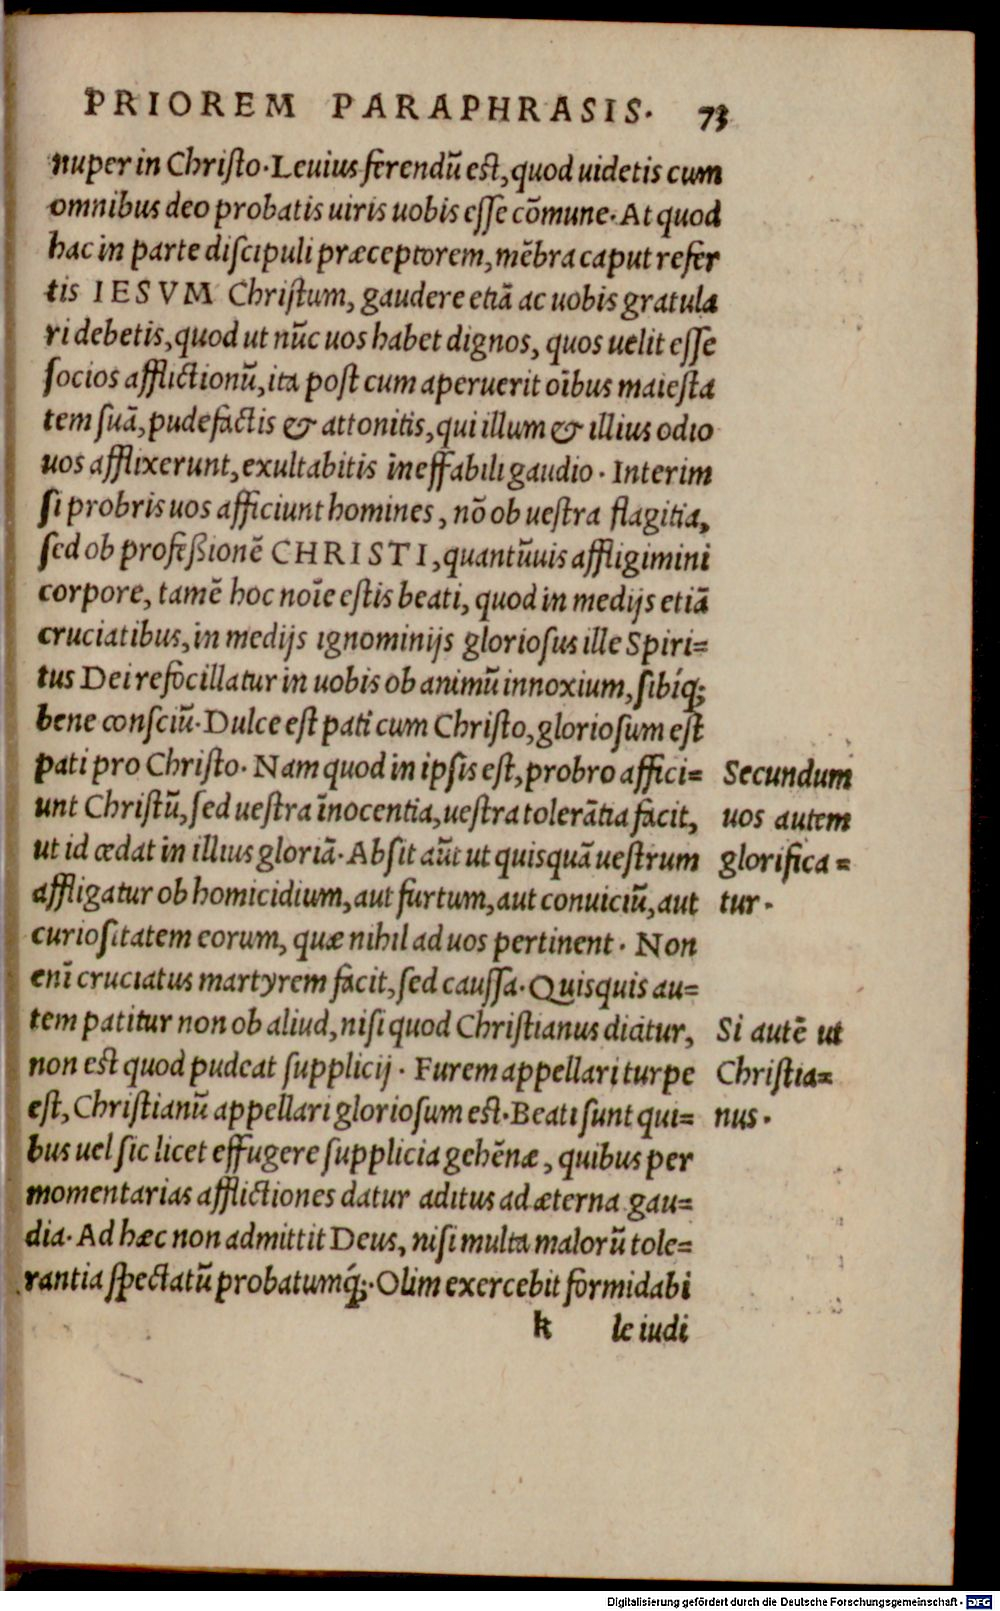 PRIOREM PARAPHRASIS. 73
nuper in Christo. Leuius ferendũ est, quod uidetis cum
omnibus deo probatis uiris uobis esse cõmune. At quod
hac in parte discipuli præceptorem, mẽbra caput refer
tis IESVM Christum, gaudere etiã ac uobis gratula
ri debetis, quod ut nũc uos habet dignos, quos uelit esse
socios afflictionũ, ita post cum aperuerit oĩbus maiesta
tem suã, pudefactis & attonitis, qui illum & illius odio
uos afflixerunt, exultabitis ineffabili gaudio. Interim
si probris uos afficiunt homines, nõ ob uestra flagitia,
sed ob professionẽ CHRISTI, quantũuis affligimini
corpore, tamẽ hoc noĩe estis beati, quod in medijs etiã
cruciatibus, in medijs ignominijs gloriosus ille Spiri=
tus Dei refocillatur in uobis ob animũ innoxium, sibíq;
bene consciũ. Dulce est pati cum Christo, gloriosum est
pati pro Christo. Nam quod in ipsis est, probro affici=
unt Christũ, sed uestra ĩnocentia, uestra tolerãtia facit,
ut id cedat in illius gloriã. Absit aũt ut quisquã uestrum
affligatur ob homicidium, aut furtum, aut conuiciũ, aut
curiositatem eorum, quæ nihil ad uos pertinent. Non
enĩ cruciatus martyrem facit, sed caussa. Quisquis au=
tem patitur non ob aliud, nisi quod Christianus dicitur,
non est quod pudeat supplicij. Furem appellari turpe
est, Christianũ appellari gloriosum est. Beati sunt qui=
bus uel sic licet effugere supplicia gehẽnæ, quibus per
momentarias afflictiones datur aditus ad æterna gau=
dia. Ad hæc non admittit Deus, nisi multa malorũ tole=
rantia spectatũ probatumq́;. Olim exercebit formidabi
k le iudi
Secundum
uos autem
glorifica=
tur.
Si autẽ ut
Christia=
nus.
Digitalisierung gefördert durch die Deutsche Forschungsgemeinschaft - DFG